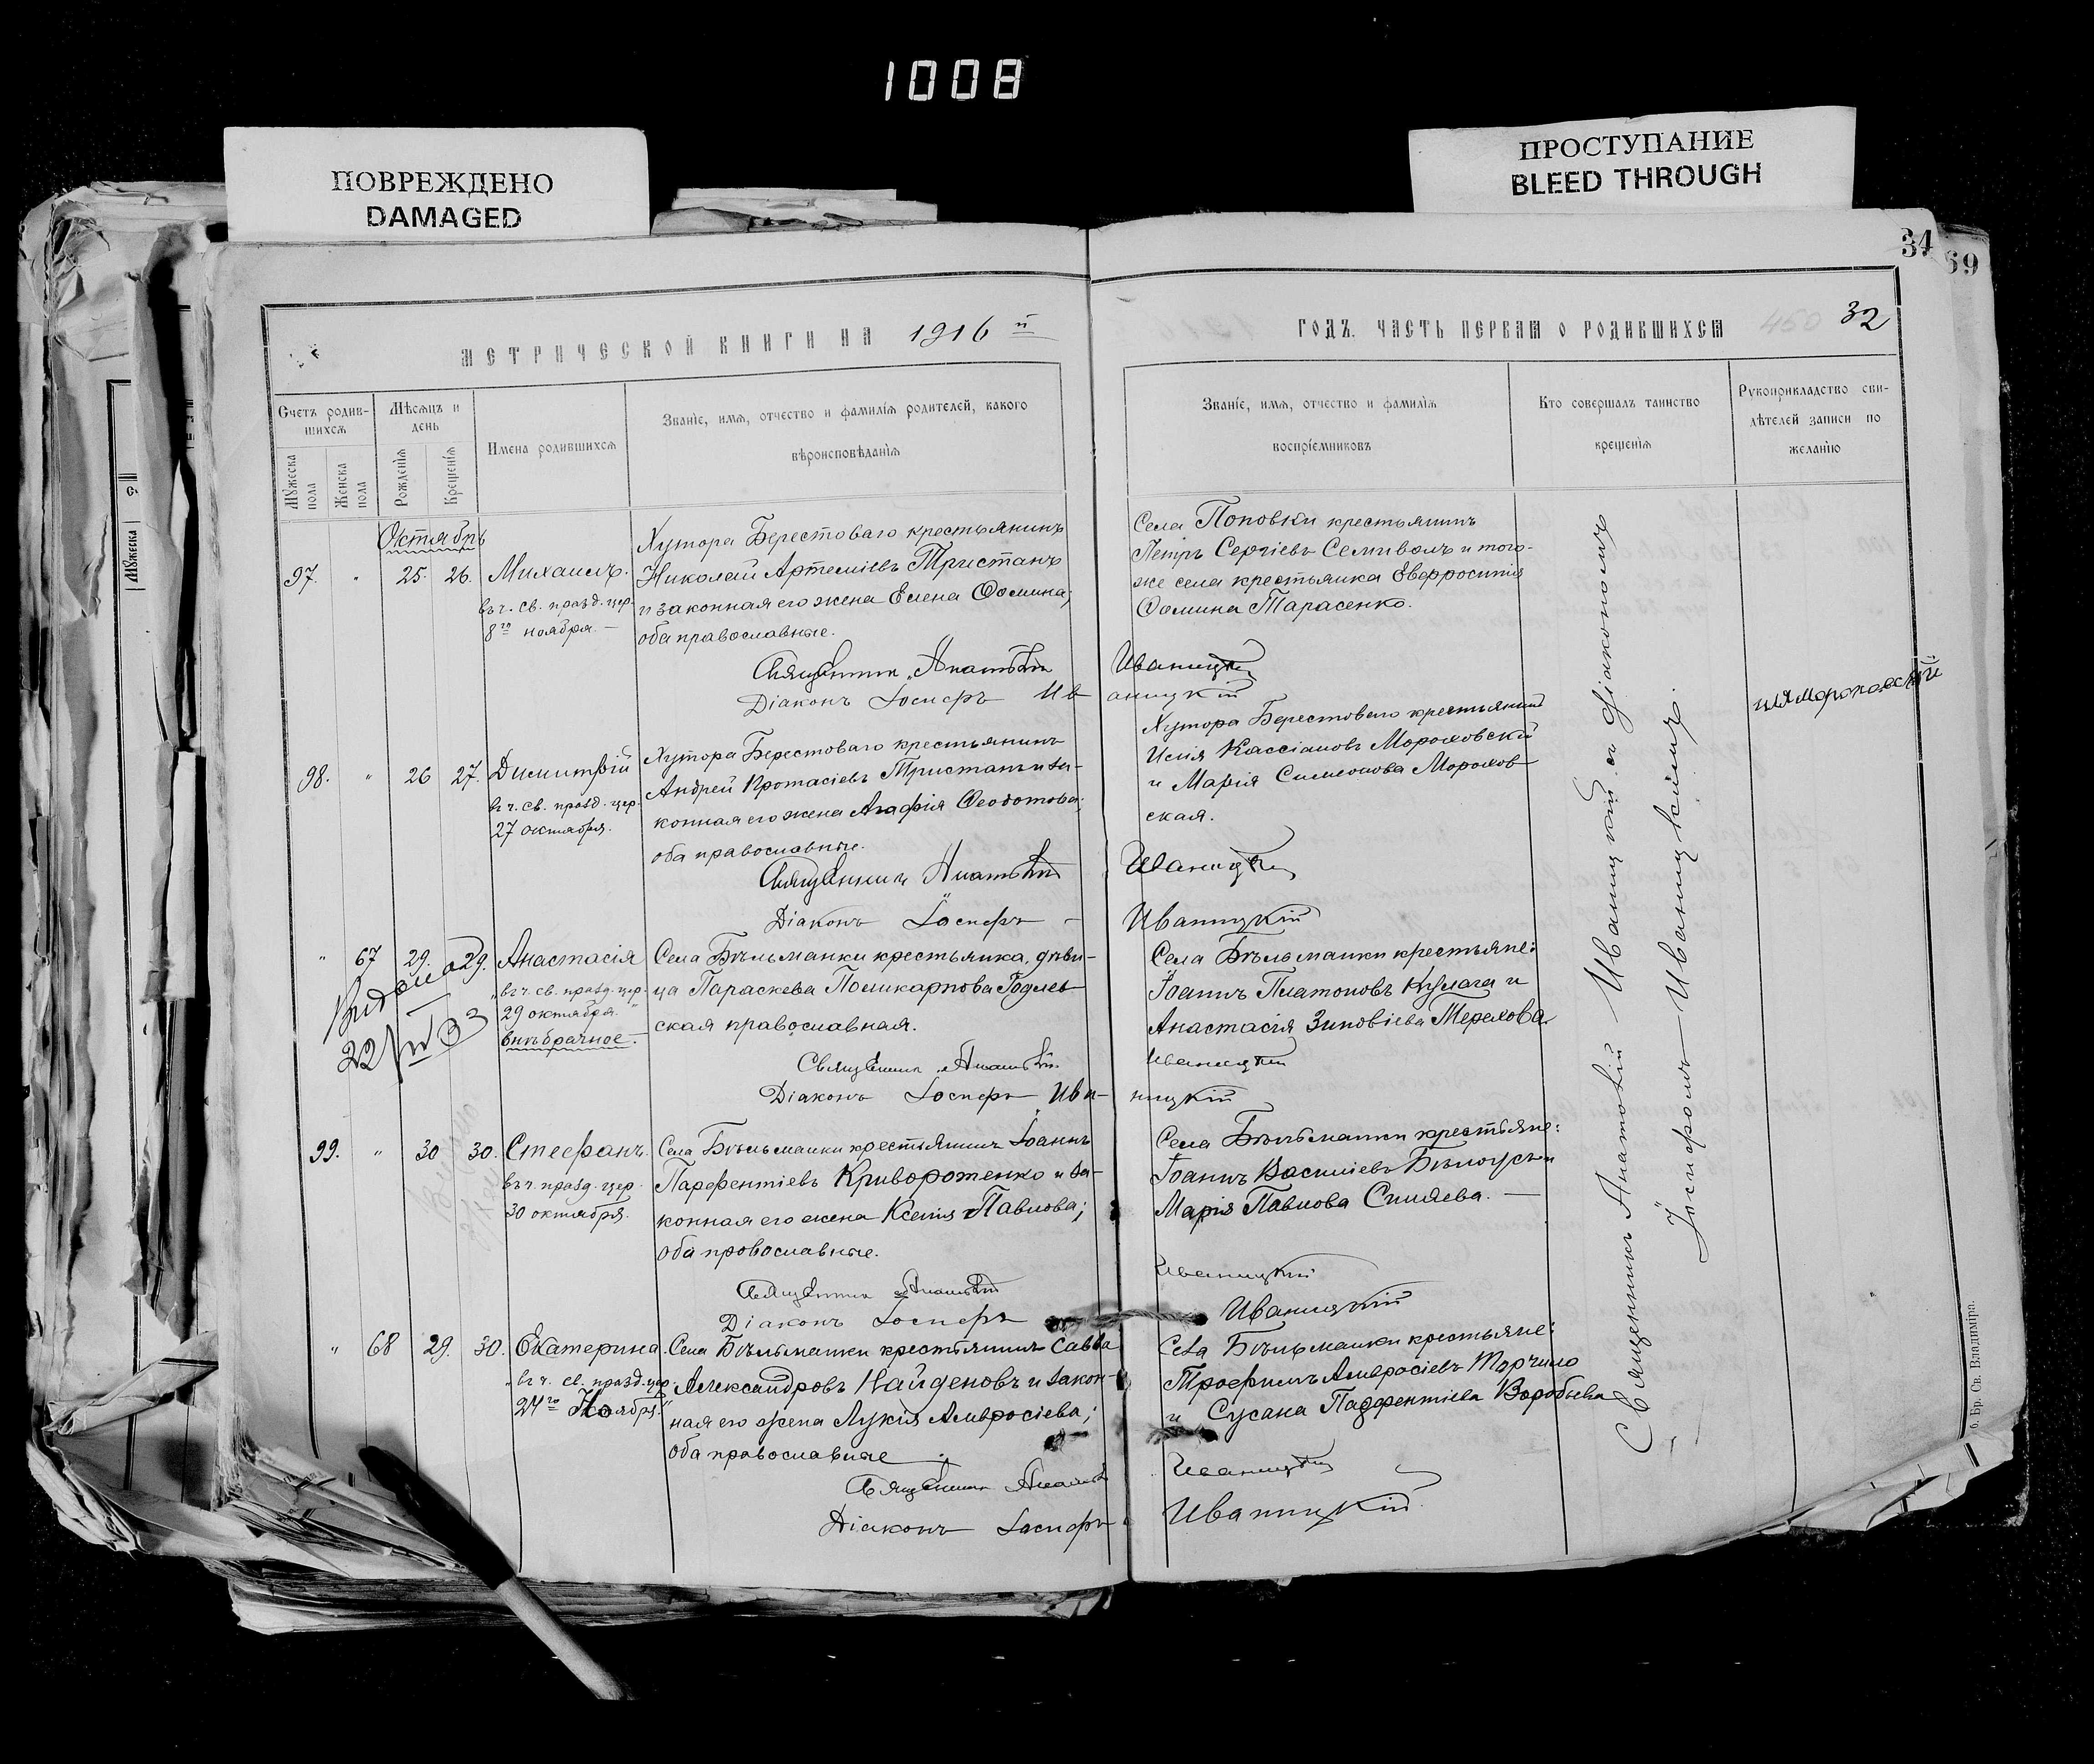 1008
ПОВРЕЖДЕНО
DAMAGED
ПРОСТУПАНИЕ
BLEED THROUGH
34
69
МЕТРИЧЕСКОЙ КНИГИ НА 1916й
ГОДЪ. ЧАСТЬ ПЕРВАЯ О РОДИВШИХСЯ 450 32
Счетъ родив-
шихся
Мужеска
пола
Женска
пола
Мѣсяцъ и
день
Рожденія
Крещенія
Имена родившихся
Званіе, имя, отчество и фамилія родителей, какого
вѣроисповѣданія
Званіе, имя, отчество и фамилія
воспріемниковъ
Кто совершалъ таинство
крещенія
Рукоприкладство сви-
дѣтелей записи по
желанію
Мужеска
Октябрь
97. " 25. 26. Михаилъ.
въ ч. св. празд. цер.
8го ноября. —
Хутора Берестоваго крестьянинъ
Николай Артеміевъ Тристанъ
и законная его жена Елена Фомина;
оба православные.
Села Поповки крестьянинъ
Петръ Сергіевъ Семиволъ и того-
же села крестьянка Евфросинія
Фомина Тарасенко.
Священникъ Анатолій Иваницкій
Діаконъ Іосифъ Иваницкій
98. " 26 27. Димитрій
въ ч. св. празд. цер.
27 октября.
Хутора Берестоваго крестьянинъ
Андрей Протасіевъ Тристанъ и за-
конная его жена Агафія Феодотова;
оба православные.
Хутора Берестоваго крестьянинъ
Илія Кассіановъ Мороховскій
и Марія Симеонова Морохов-
ская.
илямороховскій
Священникъ Анатолій Иваницкій
Діаконъ Іосифъ — Иваницкій
" 67 29. 29. Анастасія
"въ ч. св. празд. цер.
29 октября."
внѣбрачное.
Видано
22/IV 33
Села Бѣльманки крестьянка, дѣви-
ца Параскева Поликарпова Годлев-
ская православная.
Села Бѣльманки крестьяне:
Іоаннъ Платоновъ Кулага и
Анастасія Зиновіева Мерехова.
Священникъ Анатолій Иваницкій
Діаконъ Іосифъ Иваницкій
99. " 30 30. Стефанъ.
въ ч. празд. цер.
30 октября.
Села Бѣльманки крестьянинъ Іоаннъ
Парфентіевъ Криворотенко и за-
конная его жена Ксенія Павлова;
оба провославные.
Села Бѣльманки крестьяне:
Іоаннъ Василіевъ Бѣлоусъ и
Марія Павлова Спиляева. —
Священникъ Анатолій Иваницкій
Діаконъ Іосифъ Иваницкій
" 68 29. 30. Екатерина
"въ ч. св. празд. цер.
24го Ноября."
Села Бѣльманки крестьянинъ Савва
Александровъ Найденовъ и закон-
ная его жена Лукія Амвросіева;
оба православные
Села Бѣльманки крестьяне:
Трофимъ Амвросіевъ Торчило
и Сусана Парфентіева Воробьева
Священникъ Анатолій Иваницкій
Діаконъ Іосифъ Иваницкій.
Священникъ Анатолій Иваницкій съ діакономъ
Іосифомъ — Иваницкимъ.
б. Бр. Св. Владиміра.